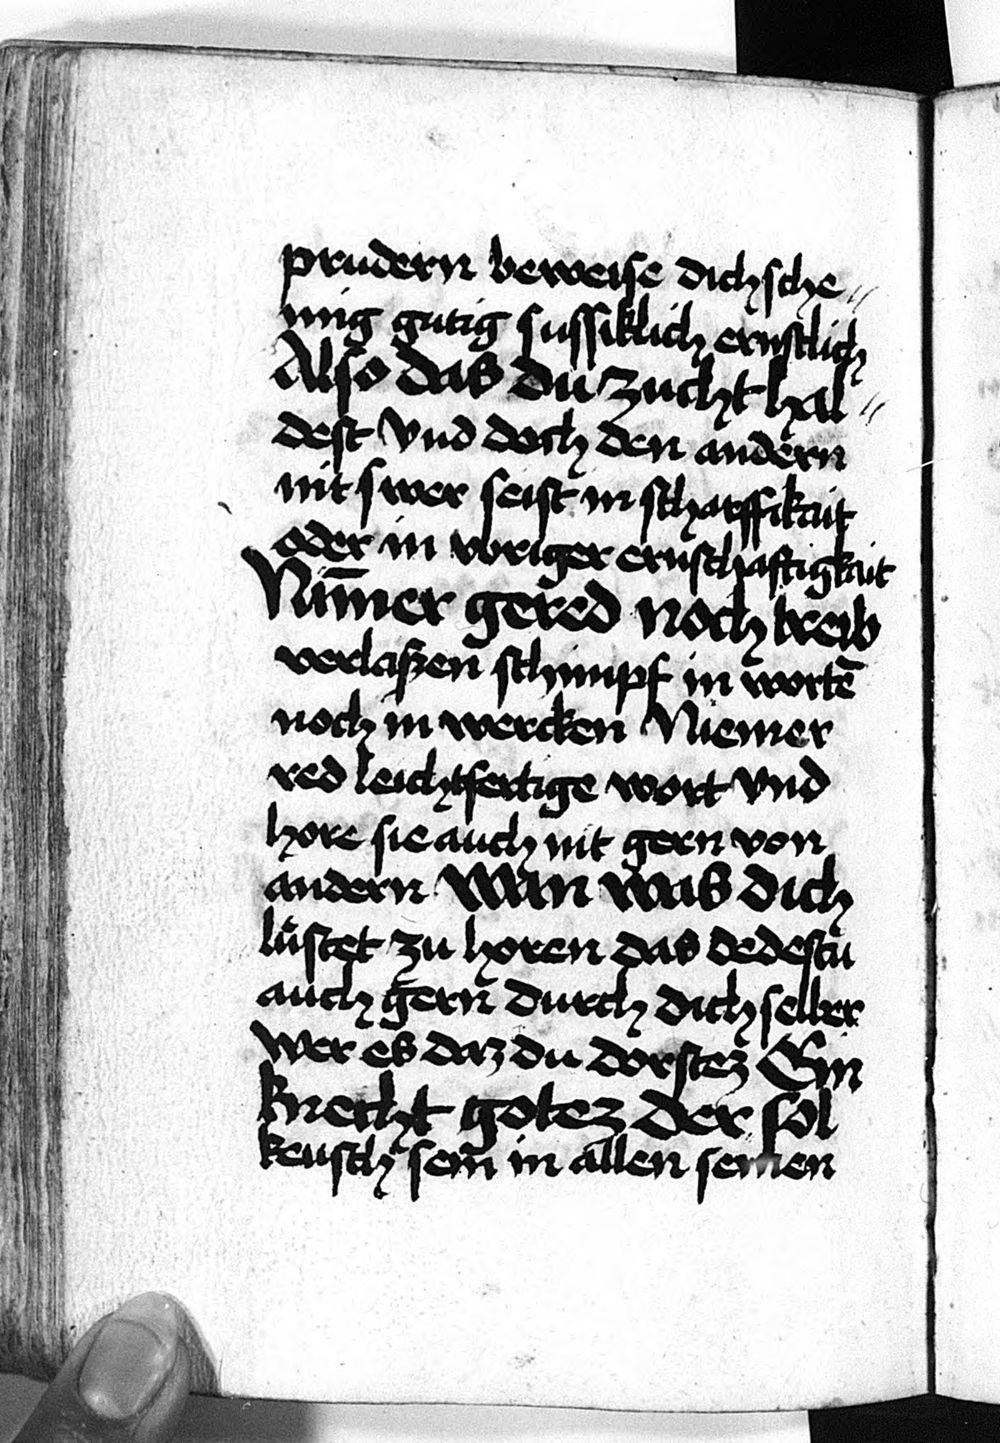 prudern beweise dich sche⸗
nnig gutig sussiklich ernstlich
Also das du zucht hal⸗
dest Vnd doch den andern
nit swer seist in scharffikait
oder in voriger ernsthaftigkait
Nim̄er gered noch treib
verlaßen schimpf in wortē
noch in wercken Niemer
red leichtfertige wort vnd
hore sie auch nit gern von
andern Wan was dich
lüstet zu horen das dedestu
auch gern durch dich selber
wer es daz du dorstez Ein
knecht gotez der sol
keusch sein in allen seinen